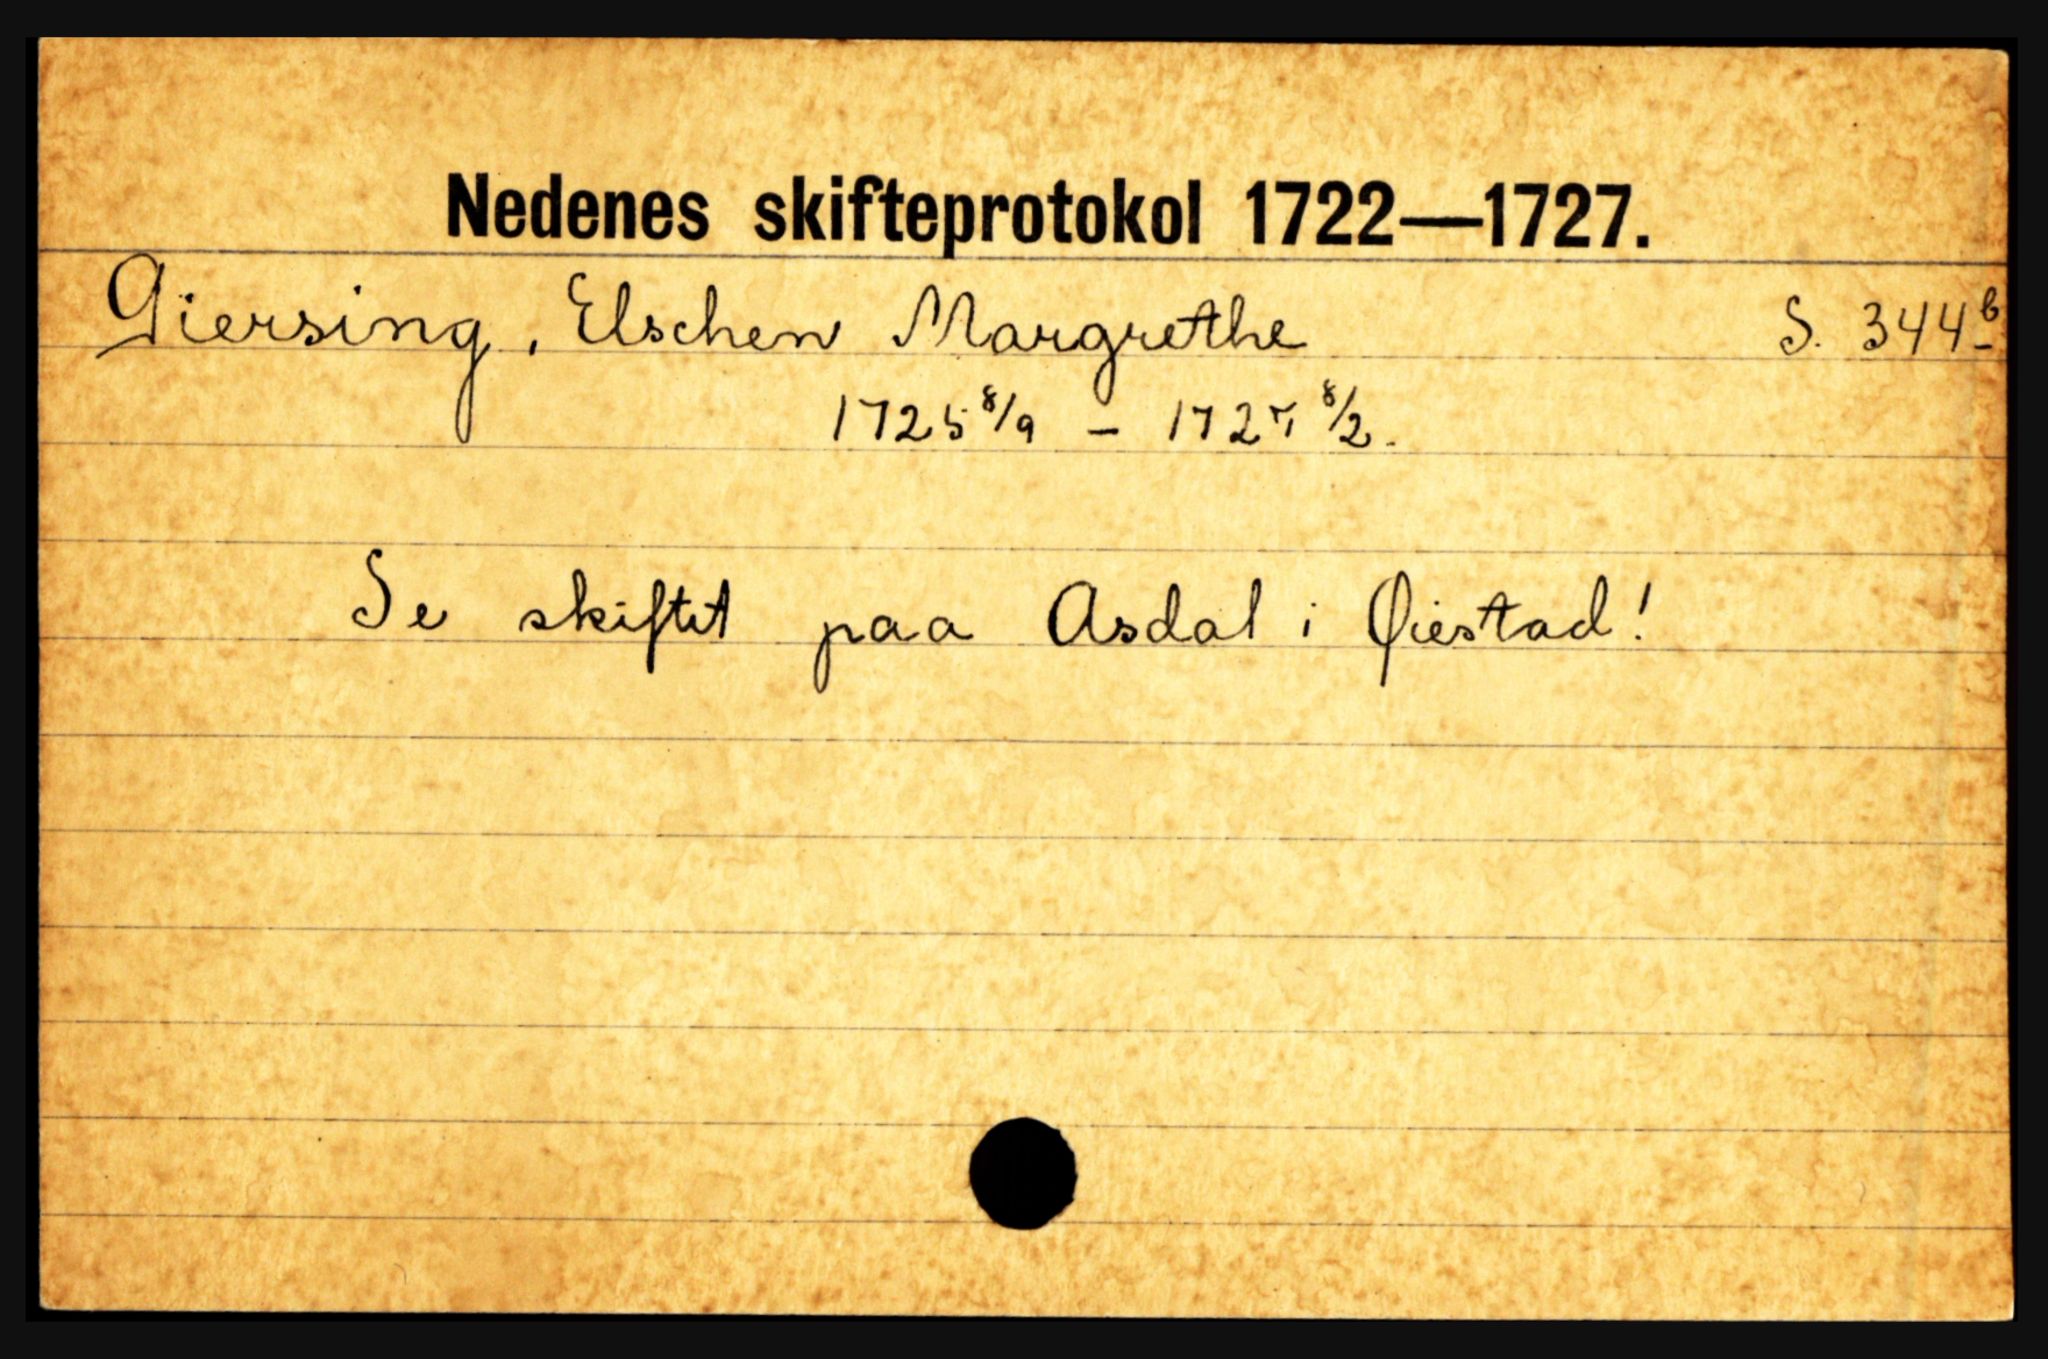 Nedenes skifteprotokol 1722—1727.
Giersing, Elschen Margrethe S. 344b
1725 8/9 — 1727 8/2.
Se skiftet paa Asdal i Øiestad!